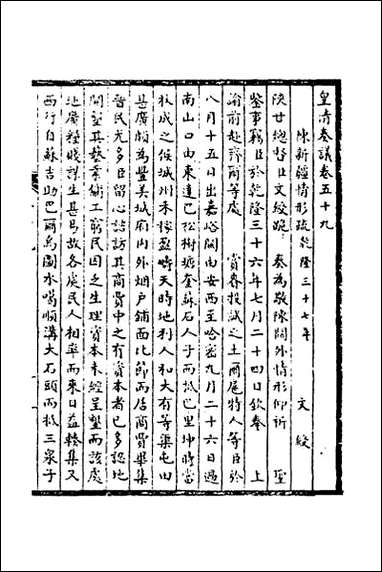 皇清奏議卷五十九
陳新疆情形疏乾隆三十七年 文綬
陝甘總督臣文綬跪 奏為敬陳關外情形仰祈 聖
鑒事竊臣於乾隆三十六年七月二十四日欽奉 上
諭前赴濟爾等處 賞眷投誠之土爾扈特人等臣於
八月十五日出嘉峪關由安西至哈密九月二十六日過
南山口由東達巴松樹塘奎蘇石人子而抵巴里坤時當
收成之候城州禾稼盈疇天時地利人和大有等渠屯田
甚廣頗為豐美城廂內外烟戶鋪面比節而居商賈畢集
晉民尤多臣留心訪訪其商賈中之有資本者已多認地
開墾其藝業術工窮民因乏生理資本未經呈墾而該處
地廣糧賤謀生甚易故各處民人相率而來日益輳集又
西行自蘇吉助巴爾烏圖水噶順溝大石頭而抵三泉子